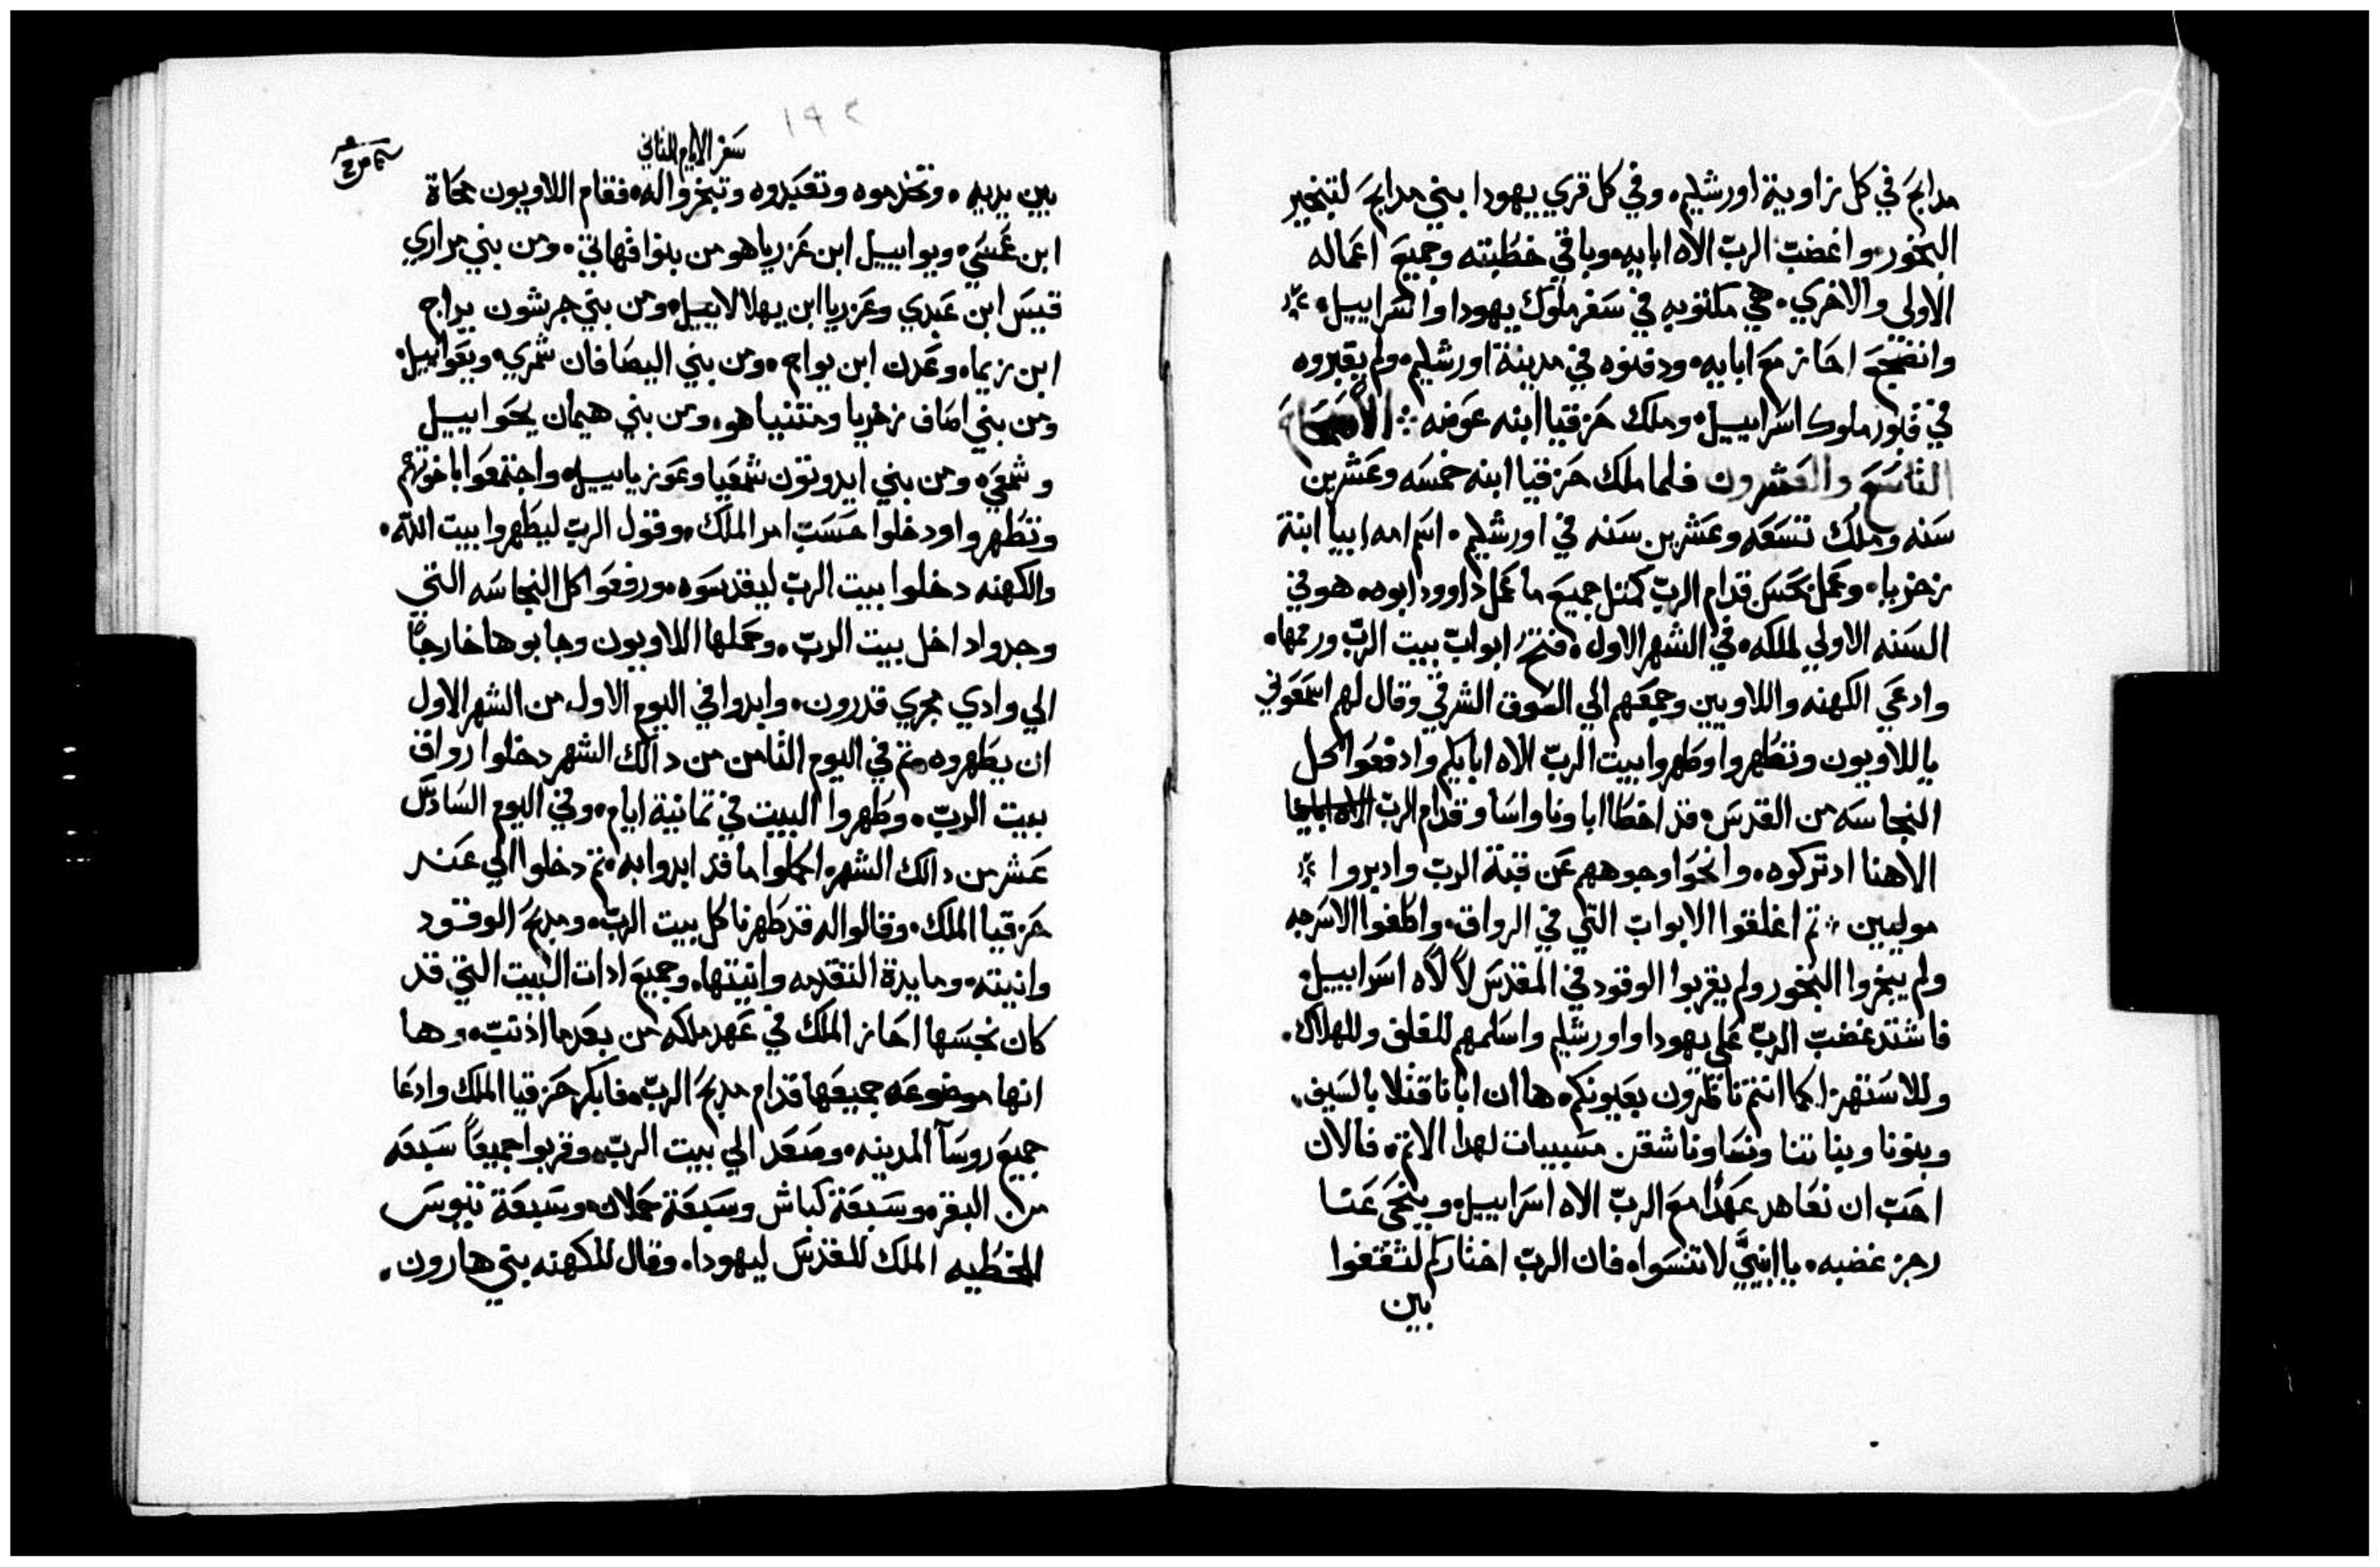 مدابح في كل زاوية اورشليم. وفي كل قري يهودا بني مدابح لتبخير
البخور. واغضب الرب الاه ابايه. وباقي خطيته وجميع اعماله
الاولي والاخري. هي مكتوبه في سفر ملوك يهودا واسراييل.
وانضجع احاز مع ابايه. ودفنوه في مدينة اورشليم. ولم يقبروه
في قبور ملوك اسراييل. وملك حزقيا ابنه عوضه ؞ الاصحاح
التاسع والعشرون فلما ملك حزقيا ابنه خمسه وعشرين
سنه وملك تسعه وعشرين سنه في اورشليم. اسم امه ابيا ابنة
زخريا. وعمل حسن قدام الرب كمثل جميع ما عمل داوود ابوه. هو في
السنه الاولي لملكه. في الشهر الاول. فتح ابواب بيت الرب ورمها.
وادعي الكهنه واللاويين وجمعهم الي السوق الشرقي وقال لهم اسمعوني
يا للاويون وتطهروا وطهروا بيت الرب الاه ابايكم وادفعوا كل
النجاسه من القدس. قد اخطا اباونا واساو قدام الرب الاه ابايها
الاهنا ادتركوه. وانحوا وجوههم عن قبة الرب وادبروا
موليين ؞ تم اغلقوا الابواب التي في الرواق. واطفوا الاسرجه
ولم يبخروا البخور ولم يقربوا الوقود في المقدس لالاه اسراييل.
فاشتد غضب الرب علي يهودا واورشليم واسلمهم للقلق وللهلاك.
وللاستهزا كما انتم ناظرون بعيونكم. ها ان ابانا قتلا بالسيف.
وبنونا وبناتنا ونساونا شقن مسبيات لهدا الاتم. فالان
احب ان نعاهد عهدا مع الرب الاه اسراييل. وينحي عنا
رجز غضبه. يا ابنيي لا تنسوا. فان الرب اختاركم لتقفوا
بين
١٩٢
سفر الايام الثاني
بين يديه. وتخدموه وتعبدوه وتبخروا له. فقام اللاويون محاة
ابن عسي. ويواييل ابن عزريا هو من بنوا قهاتي. ومن بني مراري
قيس ابن عبدي وعزريا ابن يهلالاييل. ومن بني جرشون يواح
ابن زيما. وعدن ابن يواح. ومن بني اليصافان شمري. ويعواييل.
ومن بني اصاف زخريا ومتنياهو. ومن بني هيمان يحواييل
وشمعي. ومن بني ايدوتون شمعيا وعوزياييل. واجتمعوا باخوتهم
وتطهروا ودخلوا حسب امر الملك. وقول الرب ليطهروا بيت الله.
والكهنه دخلوا بيت الرب ليقدسوه. ورفعوا كل النجاسه التي
وجدوا داخل بيت الرب. وحملها اللاويون وجابوها خارجا
الي وادي مجري قدرون. وابدوا في اليوم الاول من الشهر الاول
ان يطهروه. تم في اليوم التامن من دالك الشهر دخلوا رواق
بيت الرب. وطهروا البيت في تمانية ايام. وفي اليوم السادس
عشر من دالك الشهر. اكملوا ما قد ابدوا به. تم دخلوا الي عند
حزقيا الملك. وقالوا له قد طهرنا كل بيت الرب. ومدبح الوقود
وانيته. ومايدة التقدمه وانيتها. وجميع ادات البيت التي قد
كان نجسها احاز الملك في عهد ملكه من بعد ما اذنب. وها
انها موضوعه جميعها قدام مدبح الرب. فابكر حزقيا الملك وادعا
جميع روسا المدينه. وصعد الي بيت الرب. وقربوا جميعا سبعه
من البقر. وسبعة كباش وسبعة حملان. وسبعة تيوس
للخطيه الملك للقدس ليهودا. وقال للكهنه بني هارون.